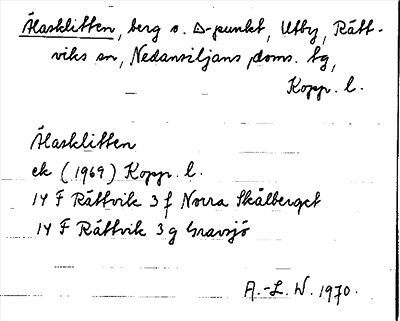 Älasklitten, berg o. Δ-punkt, Utby, Rätt-
viks sn, Nedansiljans doms. tg,
Kopp. l.
Älasklitten
ek (1969) Kopp. l.
14 F Rättvik 3 f Norra Skålberget
14 F Rättvik 3 g Gravsjö
A.-L. W. 1970.